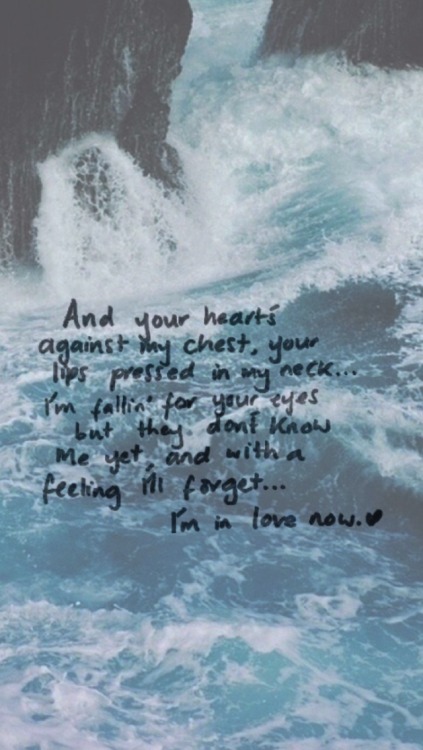 And your heart's
against my chest, your
lips pressed in my neck...
I'm fallin' for your eyes
but they don't know
me yet, and with a
feeling I'll forget...
I'm in love now.♥